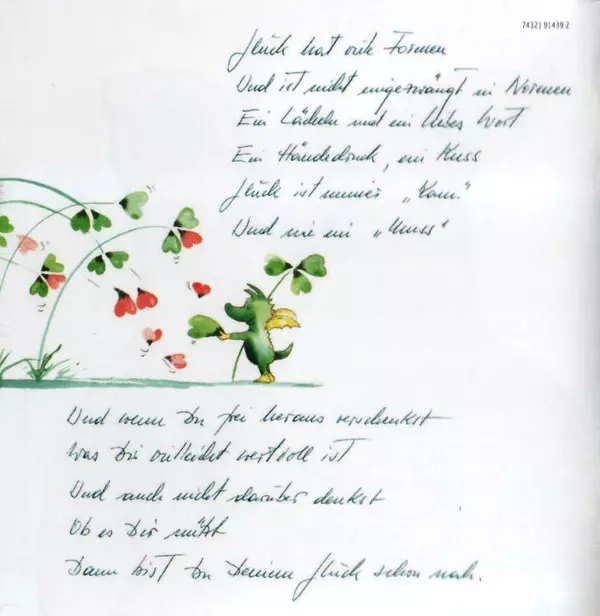 74321 91439 2
Glück hat viele Formen
Und ist nicht eingezwängt in Normen
Ein Lächeln und ein liebes Wort
Ein Händedruck, ein Kuss
Glück ist immer „Kann"
Und nie ein „Muss"
Und wenn Du frei heraus verschenkst
Was Dir vielleicht wertvoll ist
Und auch nicht darüber denkst
Ob es Dir nützt
Dann bist Du Deinem Glück schon nah.